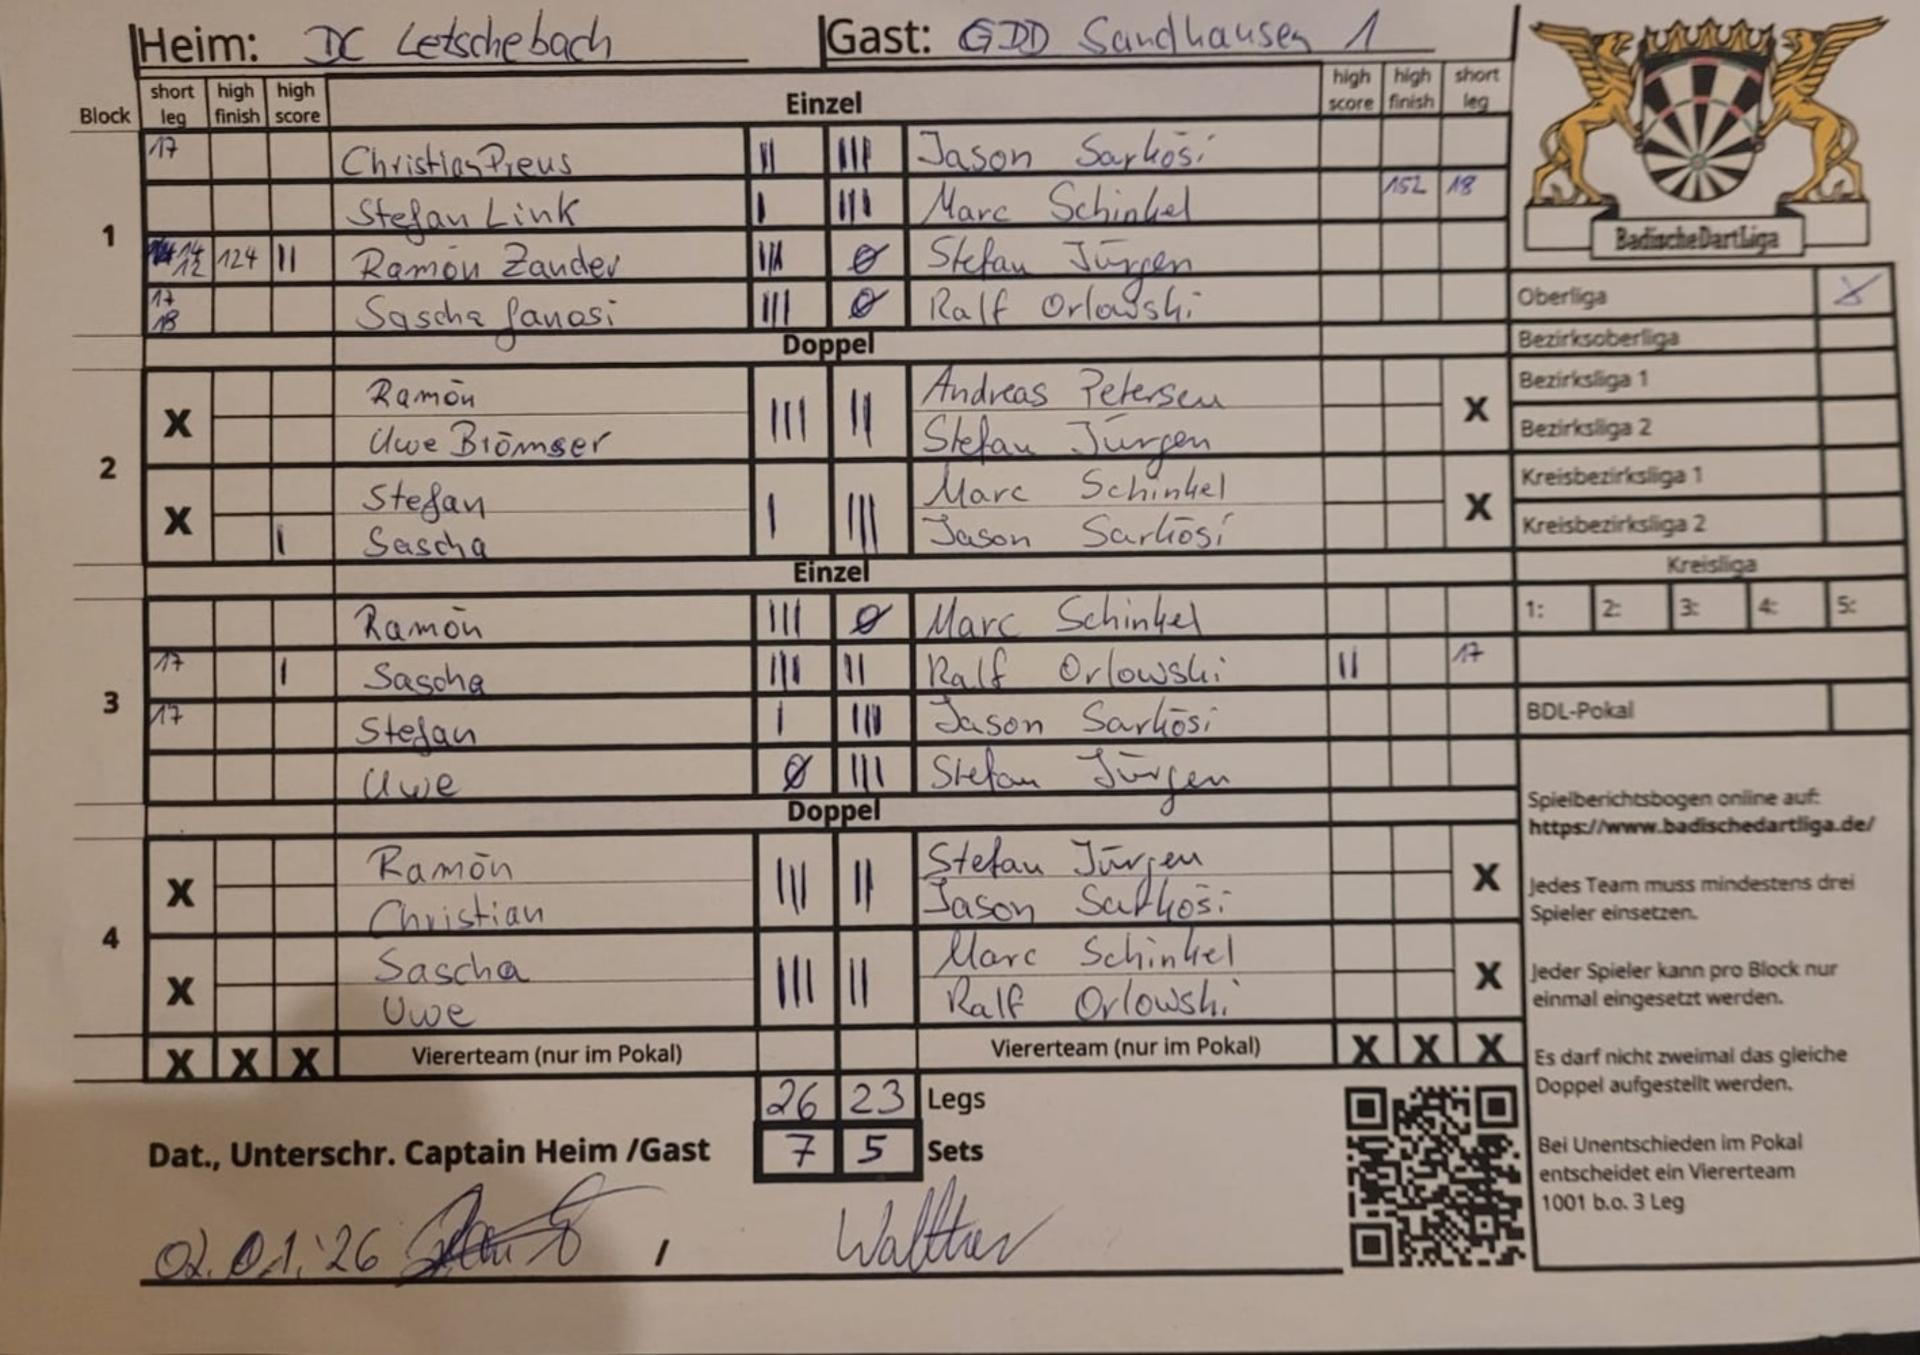 Heim: DC Letschebach Gast: GDD Sandhausen 1
Block short leg high finish high score Einzel high score high finish short leg
1
17 Christian Preus II III Jason Sarkösi
Stefan Link I III Marc Schinkel 152 18
14 12 124 II Ramon Zander III 0 Stefan Jürgen
17 18 Sascha Janosi III 0 Ralf Orlowski
Doppel
2
X Ramon III II Andreas Petersen X
Uwe Brömser Stefan Jürgen
X Stefan I III Marc Schinkel X
I Sascha Jason Sarkösi
Einzel
3
Ramon III 0 Marc Schinkel
17 I Sascha III II Ralf Orlowski II 17
17 Stefan I III Jason Sarkösi
Uwe 0 III Stefan Jürgen
Doppel
4
X Ramon III II Stefan Jürgen X
Christian Jason Sarkösi
X Sascha III II Marc Schinkel X
Uwe Ralf Orlowski
X X X Viererteam (nur im Pokal) Viererteam (nur im Pokal) X X X
26 23 Legs
Dat., Unterschr. Captain Heim /Gast 7 5 Sets
02.01.'26 / Walther
BadischeDartLiga
Oberliga X
Bezirksoberliga
Bezirksliga 1
Bezirksliga 2
Kreisbezirksliga 1
Kreisbezirksliga 2
Kreisliga
1: 2: 3: 4: 5:
BDL-Pokal
Spielberichtsbogen online auf:
https://www.badischedartliga.de/
Jedes Team muss mindestens drei
Spieler einsetzen.
Jeder Spieler kann pro Block nur
einmal eingesetzt werden.
Es darf nicht zweimal das gleiche
Doppel aufgestellt werden.
Bei Unentschieden im Pokal
entscheidet ein Viererteam
1001 b.o. 3 Leg